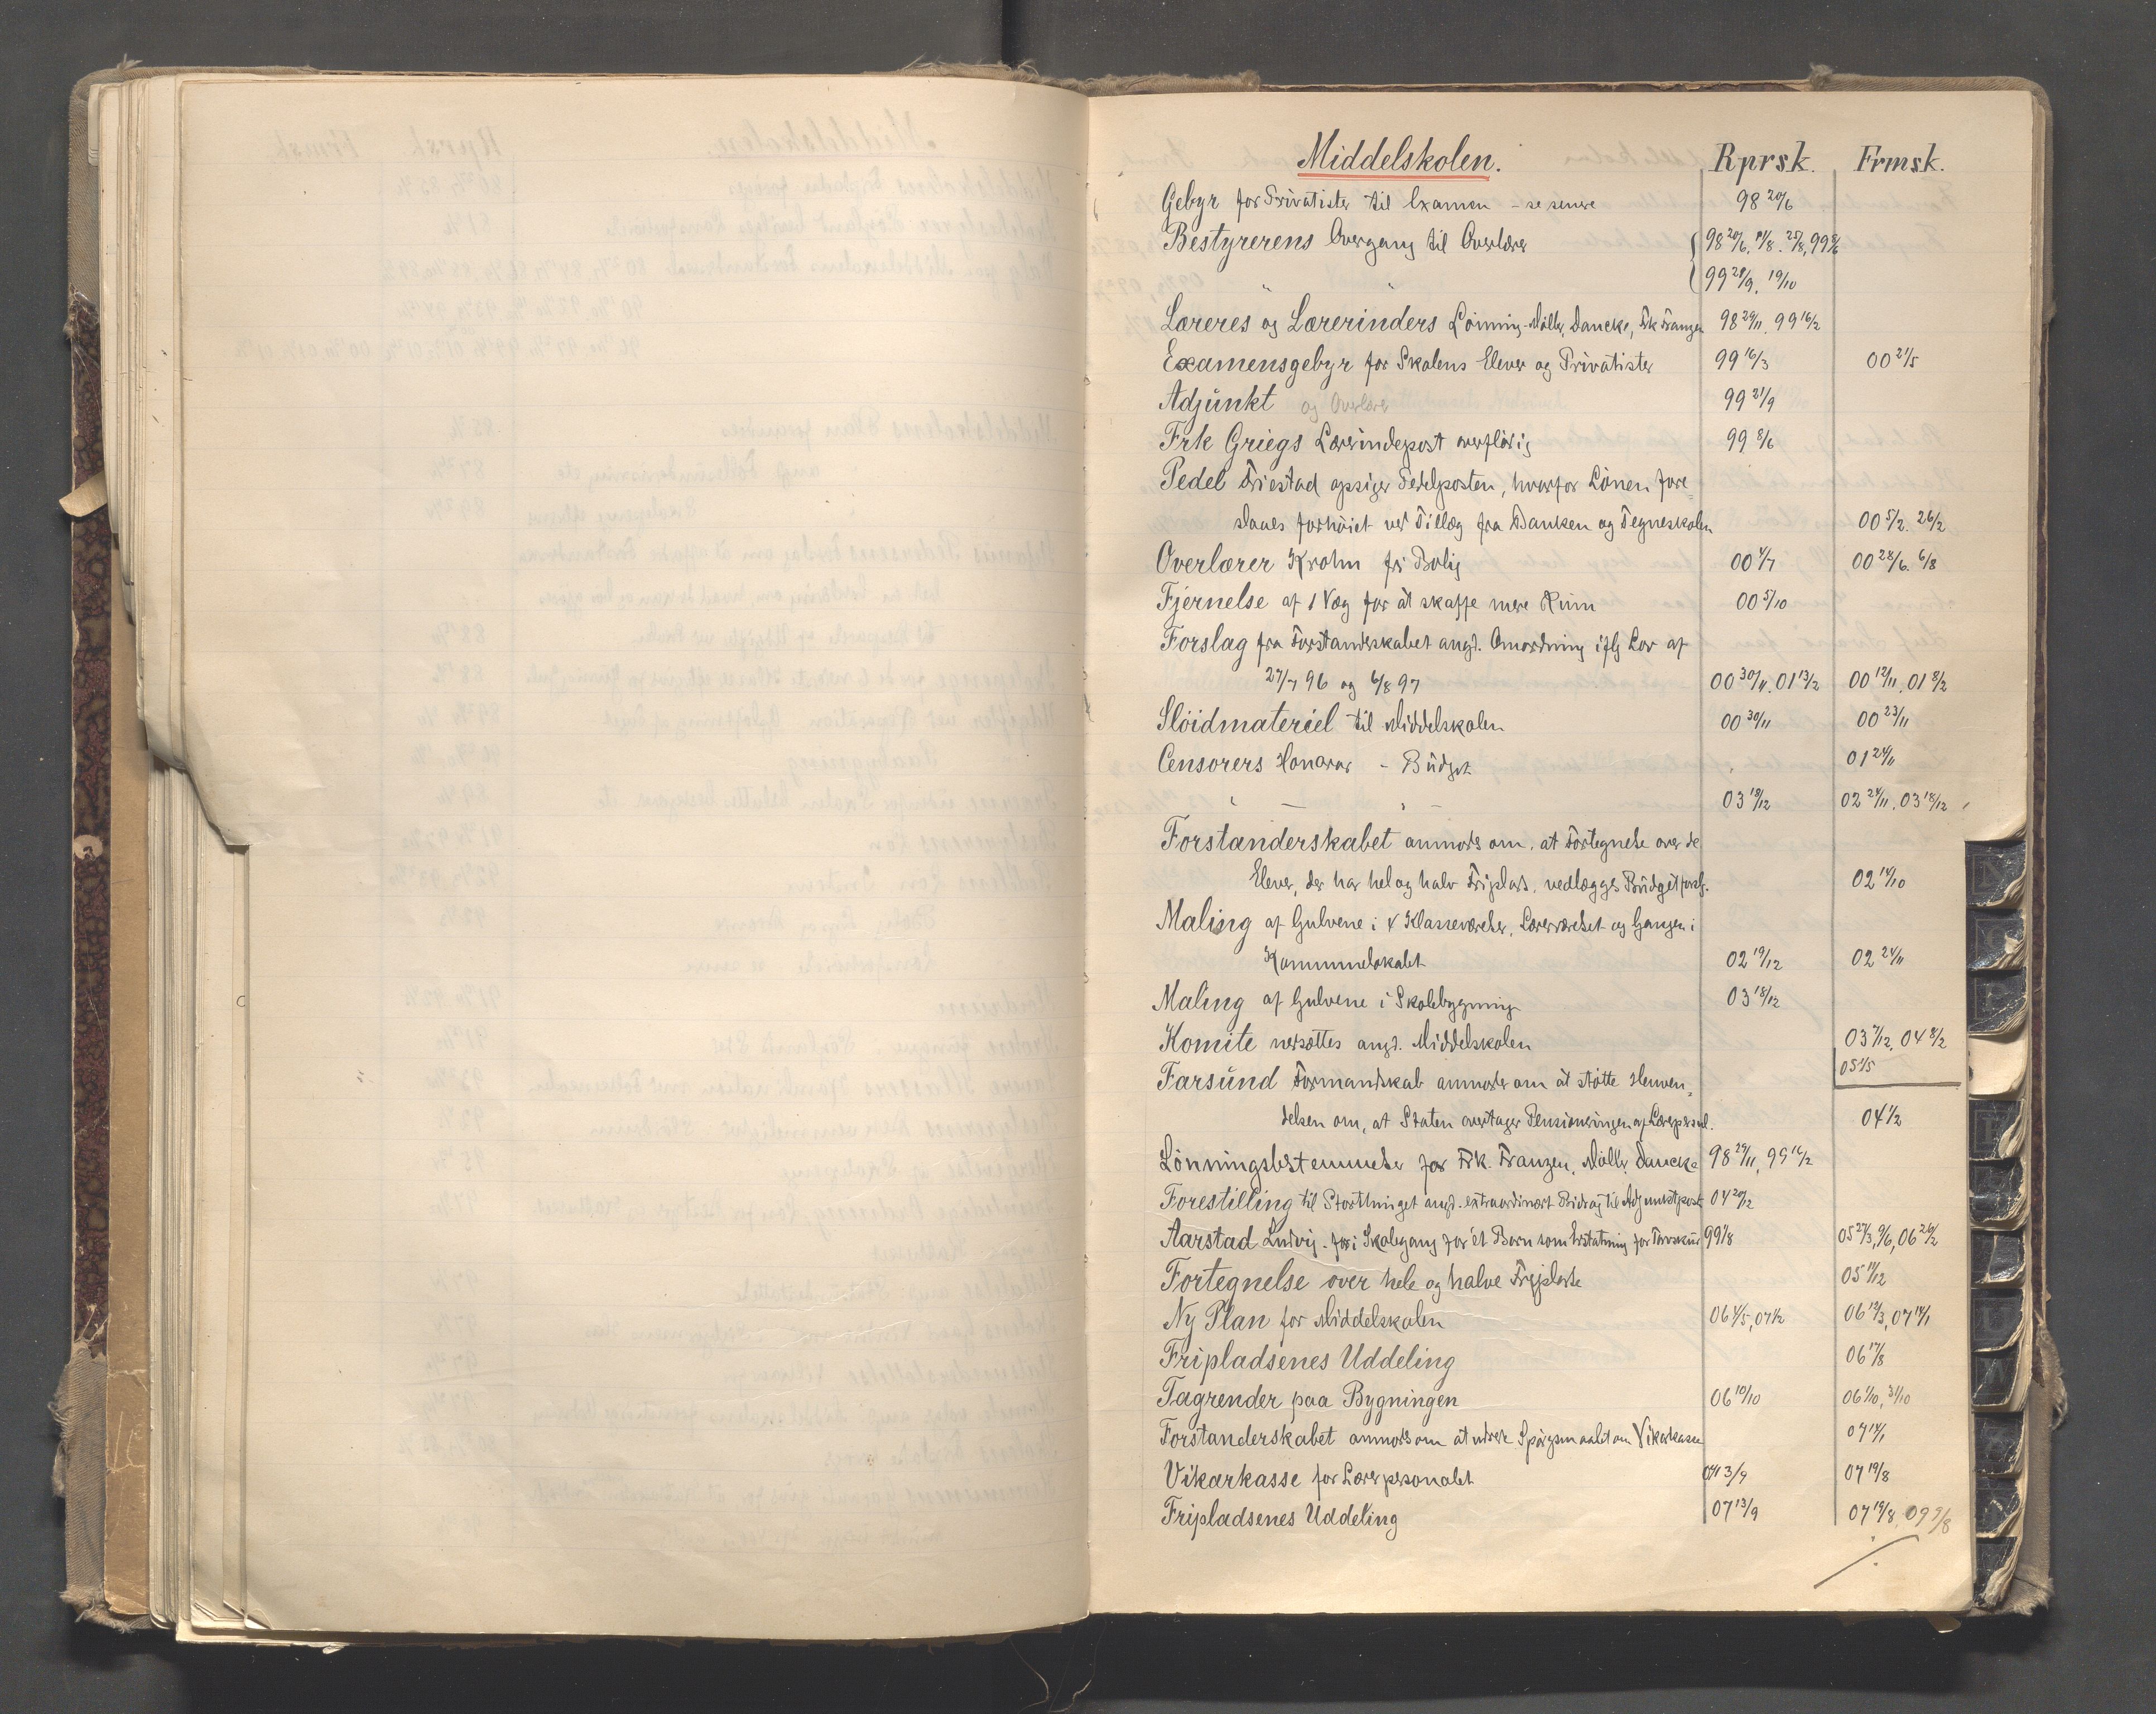 Middelskolen. Rprsk. Frmsk.
Gebyr for Privatister til Examen - se senere 98 20/6
Bestyrerens Overgang til Overlærer 98 20/6, 11/8. 25/8, 99 8/6
" " 99 21/9, 19/10
Læreres og Lærerinders Lønning - Møller, Dancke, Frk Franzen 98 29/11, 99 16/2
Examensgebyr for Skolens Elever og Privatister 99 16/3 00 21/5
Adjunkt og Overlærer 99 21/9
Frk Griegs Lærerindepost overflødig 99 8/6
Pedel Friestad opsiger Pedelposten, hvorfor Lønen fore=
slaaes forhøiet ved Tillæg fra Banken og Tegneskolen 00 5/2. 26/2
Overlærer Krohn fri Bolig 00 4/7 00 28/6. 6/8
Fjernelse af 1 Væg for at skaffe mere Rum 00 5/10
Forslag fra Forstanderskabet angd. Omordning iflg Lov af
27/7 96 og 6/8 97 00 30/11. 01 13/2 00 12/11, 01 8/2
Sløidmateriel til Middelskolen 00 30/11 00 23/11
Censorers Honorar - Budget 01 24/11
" — " — 03 18/12 02 24/11, 03 18/12
Forstanderskabet anmodes om, at Fortegnelse over de
Elever, der har hel og halv Friplads, vedlægges Budgetforsl. 02 14/10
Maling af Gulvene i 4 Klasseværelser, Lærerværelset og Gangen i
Kommunelokalet 02 19/12 02 24/11
Maling af Gulvene i Skolebygning 03 18/12
Komite nedsættes angd. Middelskolen 03 7/12, 04 8/2
05 1/5
Farsund Formandskab anmoder om at støtte Henven=
delsen om, at Staten overtager Pensioneringen af Lærerpersonal. 04 1/2
Lønningsbestemmelser for Frk. Franzen, Møller, Dancke 98 29/11, 99 16/2
Forestilling til Storthinget angd. extraordinært Bidrag til Adjunktpost 04 20/12
Aarstad Ludvig - fri Skolegang for ét Barn som Erstatning for Torvskur 99 1/8 05 27/3, 9/6, 06 26/2
Fortegnelse over hele og halve Fripladse 05 11/12
Ny Plan for Middelskolen 06 4/5, 07 1/2 06 12/3, 07 14/1
Fripladsenes Uddeling 06 17/8
Tagrender paa Bygningen 06 10/10 06 1/10, 31/10
Forstanderskabet anmodes om at udrede Spørgsmaalet om Vikarkasse 07 14/1
Vikarkasse for Lærerpersonalet 07 13/9 07 19/8
Fripladsenes Uddeling 07 13/9 07 19/8, 09 9/8